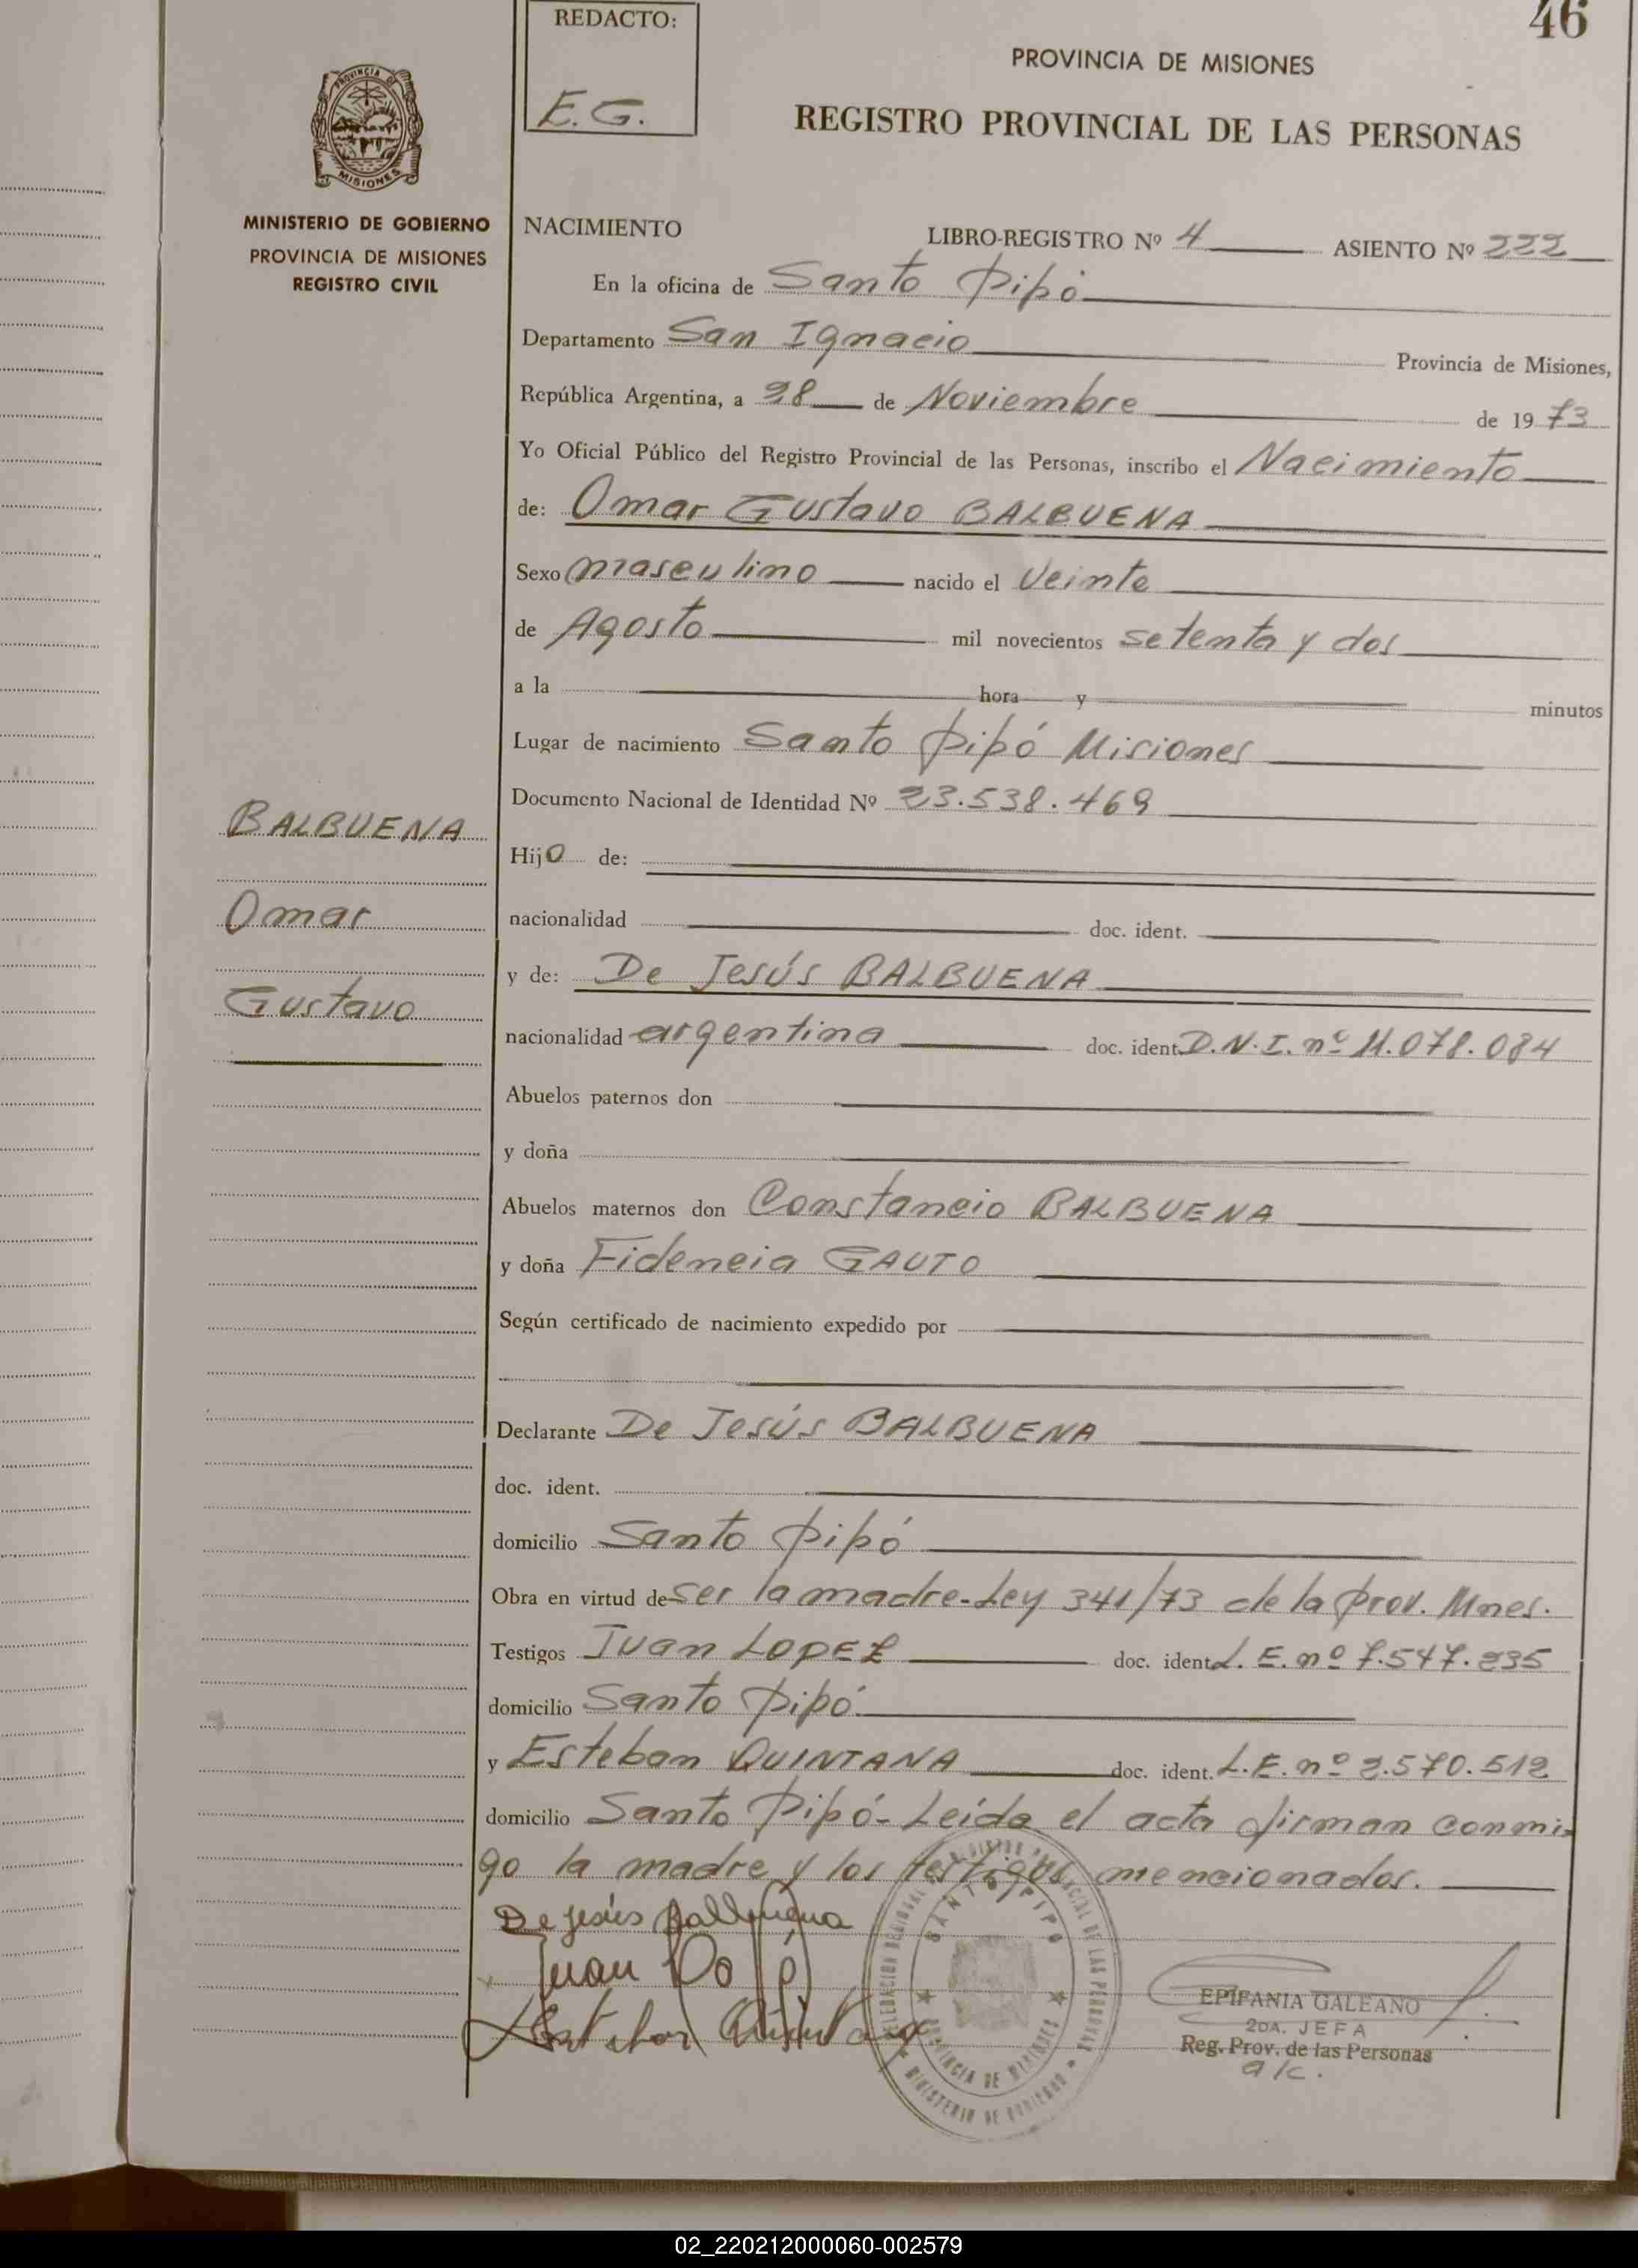 46
REDACTO:
E.G.
PROVINCIA DE MISIONES
REGISTRO PROVINCIAL DE LAS PERSONAS
PROVINCIA DE
MISIONES
MINISTERIO DE GOBIERNO
PROVINCIA DE MISIONES
REGISTRO CIVIL
NACIMIENTO LIBRO-REGISTRO Nº 4 ASIENTO Nº 222
En la oficina de Santo Pipó
Departamento San Ignacio Provincia de Misiones,
República Argentina, a 28 de Noviembre de 1973
Yo Oficial Público del Registro Provincial de las Personas, inscribo el Nacimiento
de: Omar Gustavo BALBUENA
Sexo masculino nacido el Veinte
de Agosto mil novecientos setenta y dos
a la hora y minutos
Lugar de nacimiento Santo Pipó Misiones
Documento Nacional de Identidad Nº 23.538.469
BALBUENA
Omar
Gustavo
Hijo de:
nacionalidad doc. ident.
y de: De Jesús BALBUENA
nacionalidad argentina doc. ident. D.N.I. nº 11.078.084
Abuelos paternos don
y doña
Abuelos maternos don Constancio BALBUENA
y doña Fidencia GAUTO
Según certificado de nacimiento expedido por
Declarante De Jesús BALBUENA
doc. ident.
domicilio Santo Pipó
Obra en virtud de ser la madre-Ley 341/73 de la Prov. Mnes.
Testigos Juan LOPEZ doc. ident. L.E. nº 7.547.235
domicilio Santo Pipó
y Esteban QUINTANA doc. ident. L.E. nº 2.570.512
domicilio Santo Pipó-Leída el acta firman conmi-
go la madre y los testigos mencionados.
De Jesús Balbuena
Juan
Esteban Quintana
SANTO PIPO
PROVINCIA DE MISIONES
MINISTERIO DE GOBIERNO
EPIFANIA GALEANO
2DA. JEFA
Reg. Prov. de las Personas
a/c.
02_220212000060-002579